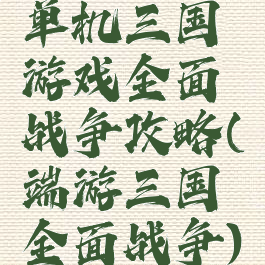 单机三国
游戏全面
战争攻略(
端游三国
全面战争)